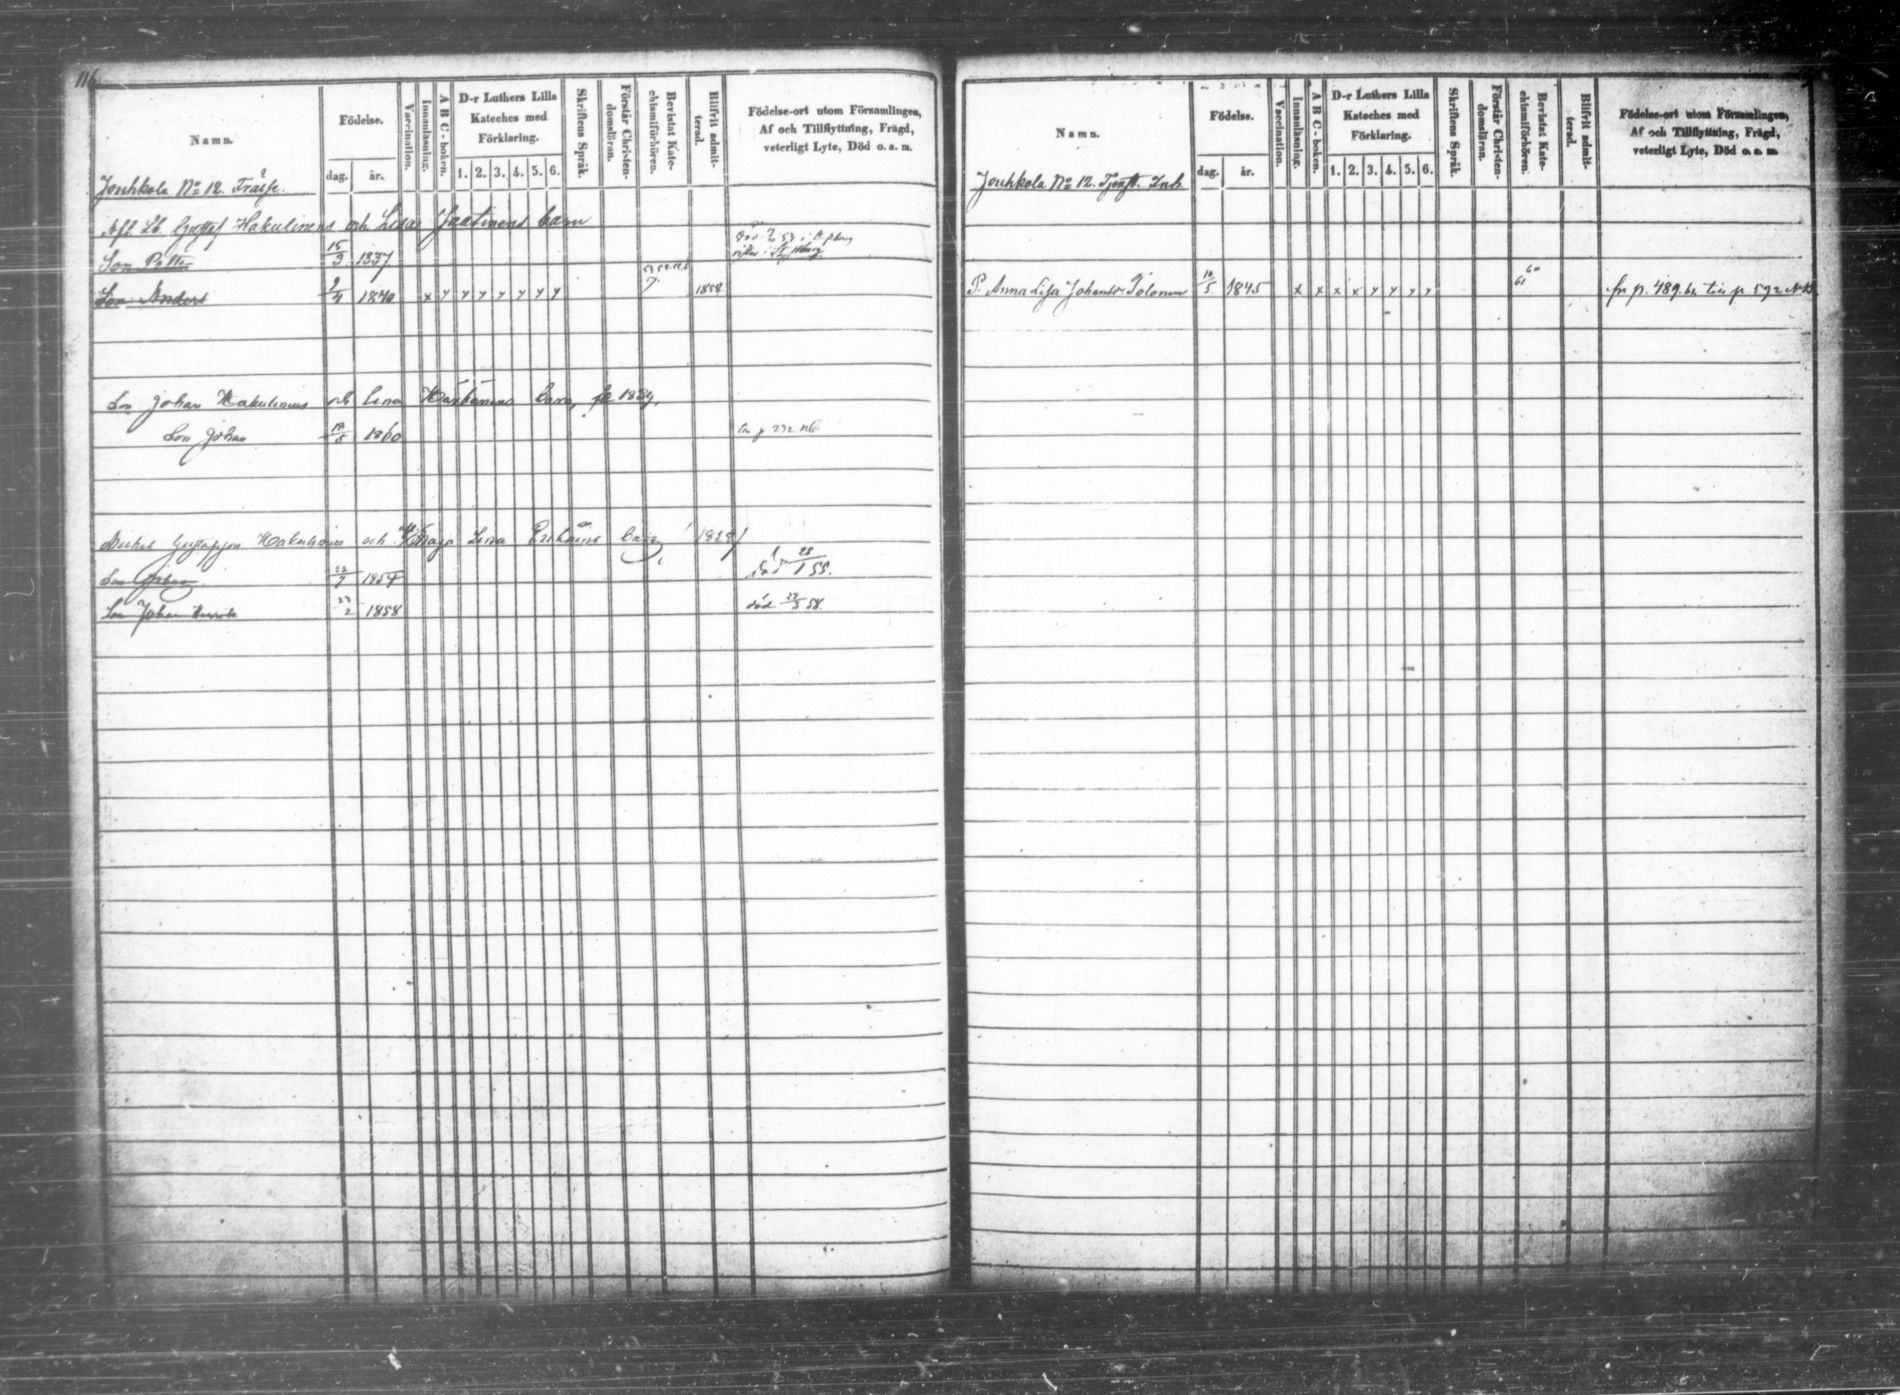 116
Namn.
Födelse.
dag. år.
Vaccination.
Innanläsning.
A B C-boken.
D-r Luthers Lilla
Kateches med
Förklaring.
1. 2. 3. 4. 5. 6.
Skriftens Språk.
Förstår Christen-
domsläran.
Bevistat Kate-
chismiförhören.
Blifvit admit-
terad.
Födelse-ort utom Församlingen,
Af och Tillflyttning, Frägd,
veterligt Lyte, Död o. a. m.
Jouhkola No 12.
Afl. Lb. Gustaf Hakulinens och Lisa Jaatinens barn
Son Petter 15/3 1837
Son Anders 2/4 1840 x y y y y y y y 7 1858
Son Johan Hakulinens och Lena barn,
Son Johan 1860 p 232
Michel Gustafsson Hakulinens och Lena barn 1828
Son Johan 22/7 1854 död 28/1 55.
Son Johan Henrik 23/2 1858 död 27/3 58.
Namn.
Födelse.
dag. år.
Vaccination.
Innanläsning.
A B C-boken.
D-r Luthers Lilla
Kateches med
Förklaring.
1. 2. 3. 4. 5. 6.
Skriftens Språk.
Förstår Christen-
domsläran.
Bevistat Kate-
chismiförhören.
Blifvit admit-
terad.
Födelse-ort utom Församlingen,
Af och Tillflyttning, Frägd,
veterligt Lyte, Död o. a. m.
Jouhkola No 12. Tjenst. Inh.
P. Anna Lisa Johansdr Tolonen 10/5 1845 x x x x y y y y 60 61 fr p. 489. 61 till p 592